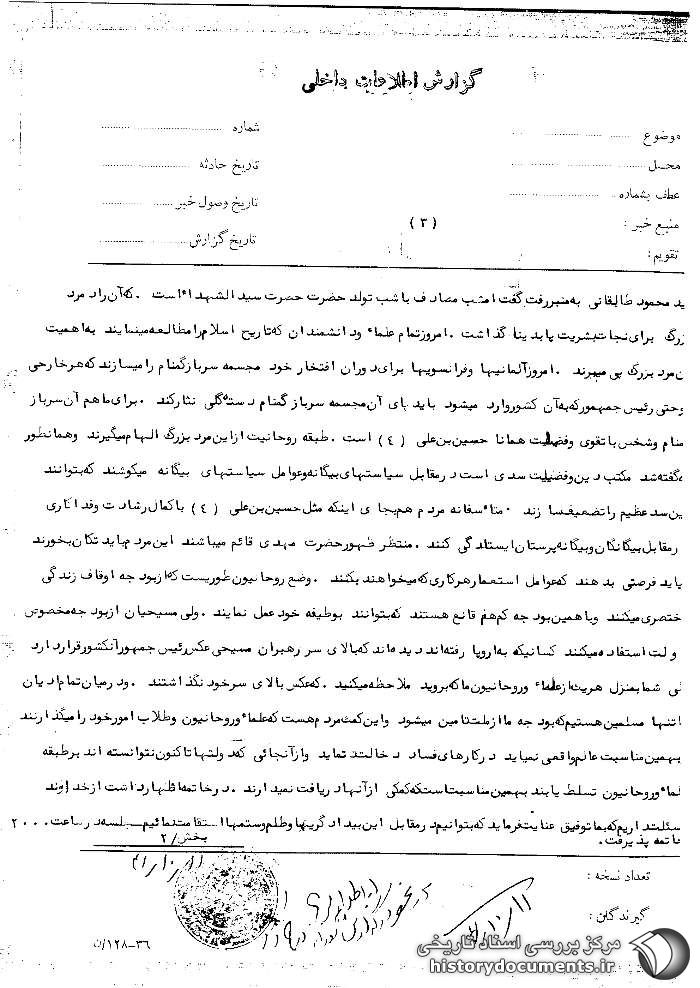 گزارش اطلاعات داخلی
موضوع شماره
محل تاریخ حادثه
عطف بشماره تاریخ وصول خبر
منبع خبر : (۳)
تقویم : تاریخ گزارش
ید محمود طالقانی به منبر رفت گفت امشب مصادف با شب تولد حضرت حضرت سید الشهداء است . که آن راد مرد
زرگ برای نجات بشریت پا بدینا گذاشت . امروز تمام علماء و دانشمندان که تاریخ اسلام را مطالعه مینمایند به اهمیت
ن مرد بزرگ پی میبرند . امروز آلمانیها و فرانسویها برای دوران افتخار خود مجسمه سرباز گمنام را میسازند که هر خارجی
وحتی رئیس جمهور که به آن کشور وارد میشود باید پای آن مجسمه سرباز گمنام دسته گلی نثار کند . برای ما هم آن سرباز
منام و شخص با تقوی و فضیلت همانا حسین بن علی (٤) است . طبقه روحانیت از این مرد بزرگ الهام میگیرند و همانطور
ه گفته شد مکتب دین و فضیلت سدی است در مقابل سیاستهای بیگانه و عوامل سیاستهای بیگانه میکوشند که بتوانند
ین سد عظیم را تضعیف سازند . متأسفانه مردم هم بجای اینکه مثل حسین بن علی (٤) با کمال رشادت و فداکاری
ر مقابل بیگانگان و بیگانه پرستان ایستادگی کنند . منتظر ظهور حضرت مهدی قائم میباشند این مردم باید تکان بخورند
باید فرصتی بدهند که عوامل استعمار هر کاری که میخواهند بکنند . وضع روحانیون طوریست که از بودجه اوقاف زندگی
ختصری میکنند و با همین بودجه کم هم قانع هستند که بتوانند بوظیفه خود عمل نمایند . ولی مسیحیان از بودجه مخصوص
ولت استفاده میکنند کسانیکه به اروپا رفته اند دیده اند که بالای سر رهبران مسیحی عکس رئیس جمهور آنکشور قرار دارد
لی شما بمنزل هریک از علماء و روحانیون ما که بروید ملاحظه میکنید . که عکس بالای سر خود نگذاشتند . و در میان تمام ادیان
ا تنها مسلمین هستیم که بودجه ما از ملت تامین میشود و این کمک مردم هست که علماء و روحانیون و طلاب امور خود را میگذارنند
بهمین مناسبت عالم واقعی نمیاید در کارهای فساد دخالت نماید و از آنجائی که دولتها تا کنون نتوانسته اند بر طبقه
لماء و روحانیون تسلط یابند بهمین مناسبت است که کمکی از آنها دریافت نمیدارند . در خاتمه اظهار داشت از خداوند
سئلت داریم که بما توفیق عنایت فرماید که بتوانیم در مقابل این بیدادگریها و ظلم و ستمها استقامت نمائیم . جلسه در ساعت ۲۰۰۰
خاتمه پذیرفت .
بخش/۲
تعداد نسخه :
گیرندگان :
۳۶-۱۲۸/ن
مرکز بررسی اسناد تاریخی
historydocuments.ir